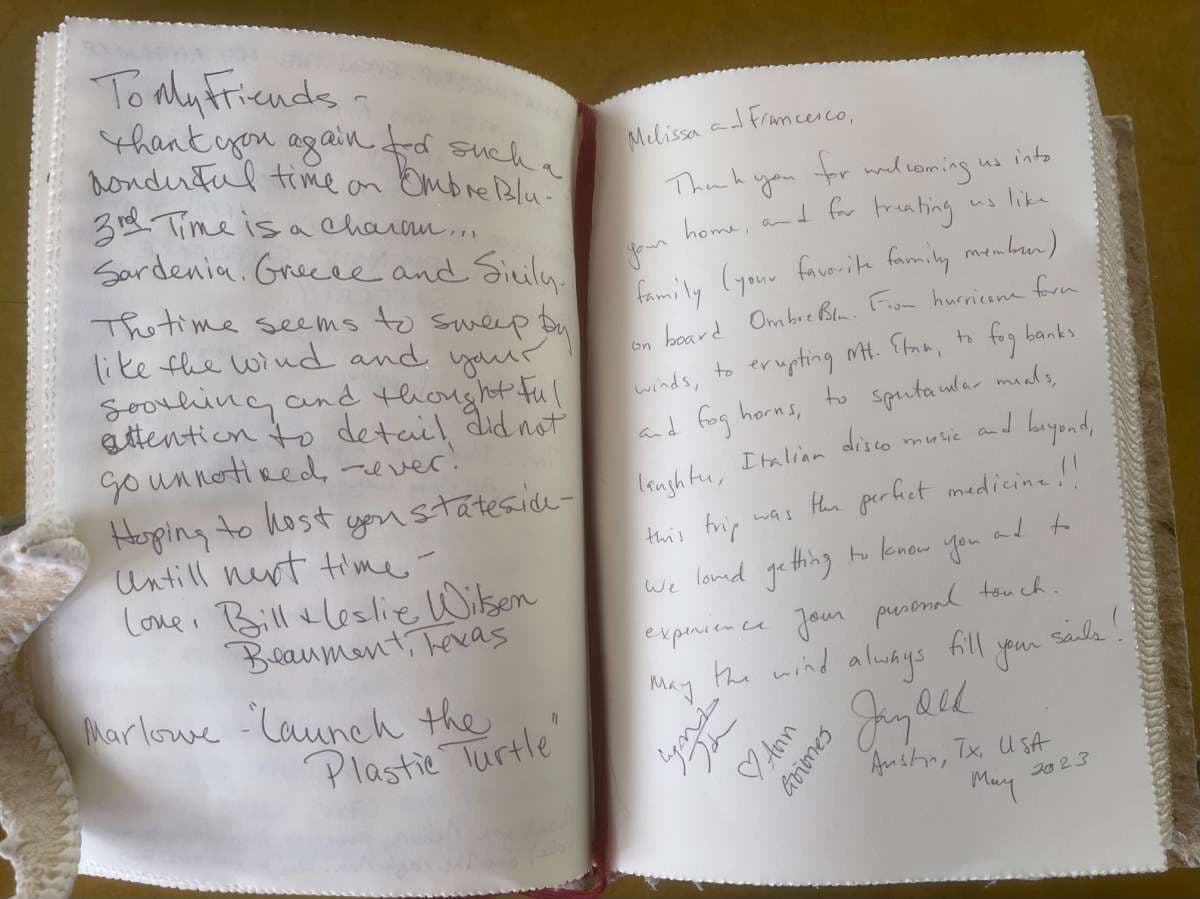 To My Friends -
thank you again for such a
wonderful time on OmbreBlu -
3rd Time is a charm...
Sardenia, Greece and Sicily.
The time seems to sweep by
like the wind and your
soothing and thoughtful
attention to detail, did not
go unnoticed - ever!
Hoping to host you stateside -
Untill next time -
Love, Bill & Leslie Wilson
Beaumont, Texas
Marlowe - "Launch the
Plastic Turtle"
Melissa and Francesco,
Thank you for welcoming us into
your home, and for treating us like
family (your favorite family members)
on board OmbreBlu. From hurricane force
winds, to erupting Mt. Etna, to fog banks
and fog horns, to spectacular meals,
laughter, Italian disco music and beyond,
this trip was the perfect medicine!!
We loved getting to know you and to
experience your personal touch.
May the wind always fill your sails!
Jay Old
♡ Ann
Grimes
Austin, Tx, USA
May 2023